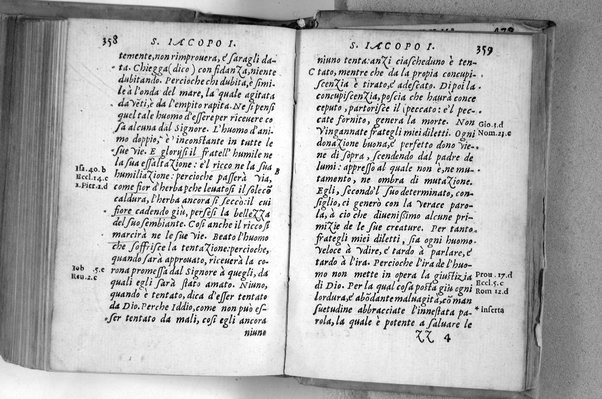 358
S. IACOPO I.
temente, non rimprouera, e' saragli da-
ta. Chiegga (dico) con fidanza, niente
dubitando. Percioche chi dubita, è simi-
le à l'onda del mare, la quale agitata
da vēti, è da l'empito rapita. Ne si pensi
quel tale huomo d'essere per riceuere co
sa alcuna dal Signore. L'huomo d'ani-
mo doppio, è inconstante in tutte le
sue vie. E glorijsi il fratell' humile ne
la sua essaltazione: e'l ricco ne la sua
humiliazione: percioche passerà via,
come fior d'herba. Pche leuatosi il sole cō
caldura, l'herba ancora si seccò: il cui
fiore cadendo giu, persesi la bellezza
del suo sembiante. Cosi anche il ricco si
marcirà ne le sue vie. Beato l'huomo
che soffrisce la tentazione: percioche,
quando sarà approuato, riceuerà la co-
rona promessa dal Signore à quegli, da
quali egli sarà stato amato. Niuno,
quando è tentato, dica d'esser tentato
da Dio. Perche Iddio, come non può es-
ser tentato da mali, cosi egli ancora
niuno
Isa. 40. b
Eccl. 14. c
1. Piet. 1. d
B
Iob .5. c
Reu. 2. c
S. IACOPO I.
359
niuno tenta: anzi ciascheduno è ten-
C tato, mentre che da la propia concupi
scenzia è tirato, e' adescato. Dipoi la
concupiscenzia, poscia che haurà conce
ceputo, partorisce il peccato: e'l pec-
cato fornito, genera la morte. Non
v'ingannate frategli miei diletti. Ogni
donazione buona, e' perfetto dono vie-
ne di sopra, scendendo dal padre de
lumi: appresso al quale non è, ne mu-
tamento, ne ombra di mutazione.
Egli, secondo'l suo determinato, con-
siglio, ci generò con la verace paro-
la, à ciò che diuenissimo alcune pri-
mizie de le sue creature. Per tanto
frategli miei diletti, sia ogni huomo
veloce à vdire, e' tardo à parlare, e'
tardo à l'ira. Percioche l'ira de l'huo-
mo non mette in opera la giustizia
di Dio. Per la qual cosa posta giu ogni
lordura, e' abōdante maluagità, cō man
suetudine abbracciate l'innestata pa-
rola, la quale è potente a saluare le
ZZ 4
Gio. 1. d
Num. 23. c
Prou. 17. d
Eccl. 5. c
Rom 12. d
* inserta